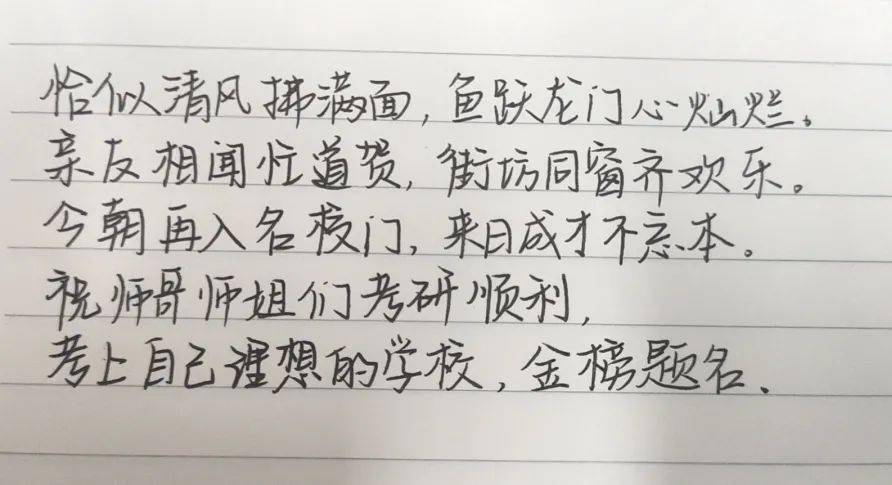 恰似清风拂满面，鱼跃龙门心灿烂。
亲友相闻忙道贺，街坊同窗齐欢乐。
今朝再入名校门，来日成才不忘本。
祝师哥师姐们考研顺利，
考上自己理想的学校，金榜题名、